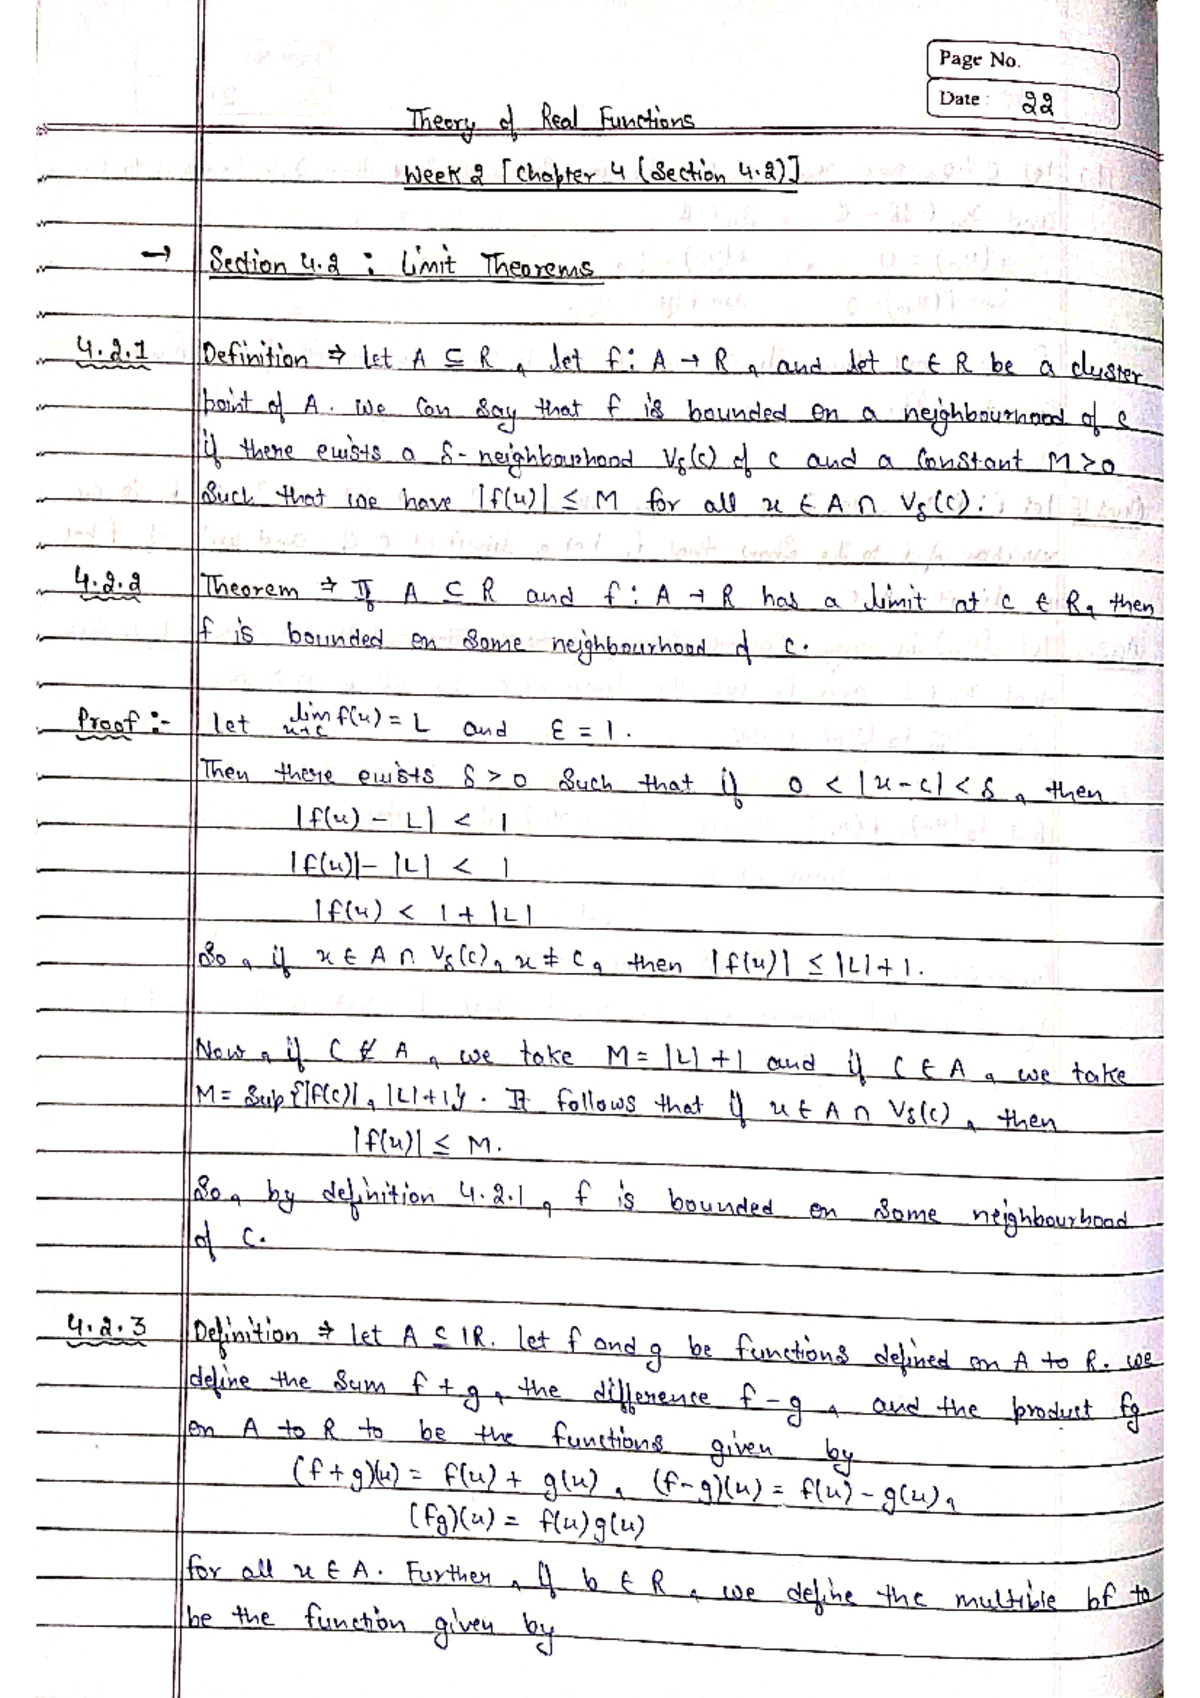 Page No.
Date : 22
Theory of Real Functions
Week 2 [Chapter 4 (Section 4.2)]
→ Section 4.2 : Limit Theorems
4.2.1 Definition ⇒ Let A ⊆ R, let f : A → R, and let c ∈ R be a cluster
point of A. We can say that f is bounded on a neighbourhood of c
if there exists a δ-neighbourhood Vδ(c) of c and a constant M>0
Such that we have |f(x)| ≤ M for all x ∈ A ∩ Vδ(c).
4.2.2 Theorem ⇒ If A ⊆ R and f : A → R has a limit at c ∈ R, then
f is bounded on Some neighbourhood of c.
Proof :- Let lim x→c f(x) = L and ε = 1.
Then there exists δ > 0 Such that if 0 < |x-c| < δ, then
|f(x) - L| < 1
|f(x)| - |L| < 1
|f(x) < 1 + |L|
So, if x ∈ A ∩ Vδ(c), x ≠ c, then |f(x)| ≤ |L|+1.
Now, if C ∉ A, we take M = |L|+1 and if C ∈ A, we take
M = Sup{|f(c)|, |L|+1}. It follows that if x ∈ A ∩ Vδ(c), then
|f(x)| ≤ M.
So, by definition 4.2.1, f is bounded on Some neighbourhood
of c.
4.2.3 Definition ⇒ Let A ⊆ IR. Let f and g be functions defined on A to R. We
define the Sum f + g, the difference f - g, and the product fg
on A to R to be the functions given by
(f+g)(x) = f(x) + g(x), (f-g)(x) = f(x) - g(x),
(fg)(x) = f(x)g(x)
for all x ∈ A. Further, if b ∈ R, we define the multiple bf to
be the function given by